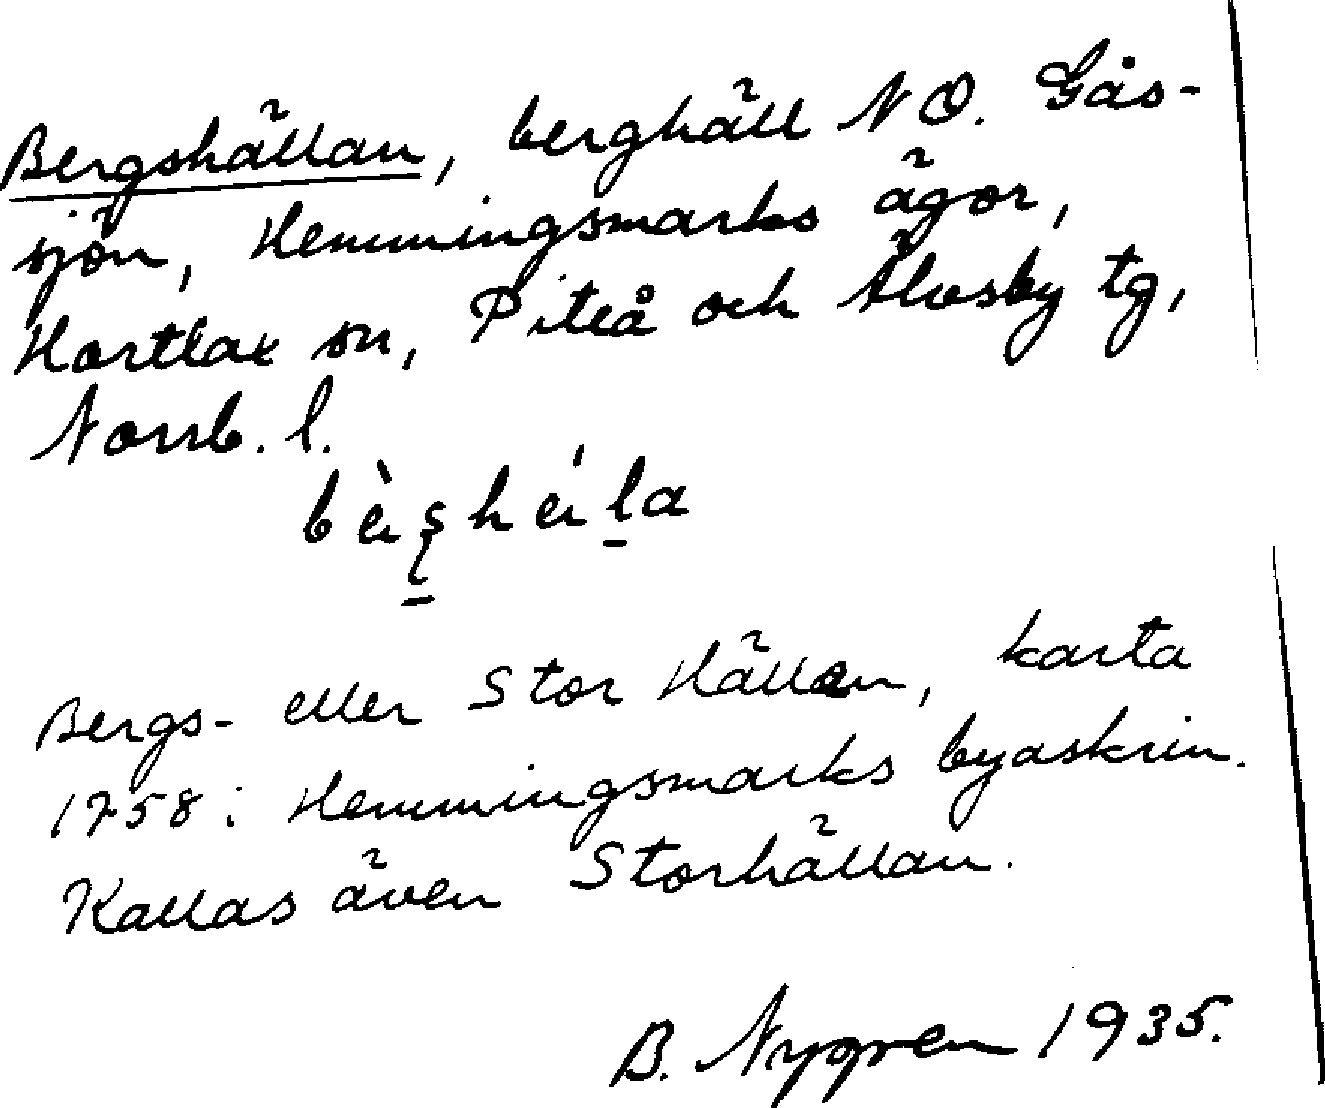 Bergshällan, berghäll NO. Gås-
sjön, Hemmingsmarks ägor,
Hortlax sn, Piteå och Älvsby tg,
Norrb. l.
Bergs- eller Stor Hällan, karta
1758 i Hemmingsmarks byaskrin.
Kallas även Storhällan.
B. Nygren 1935.